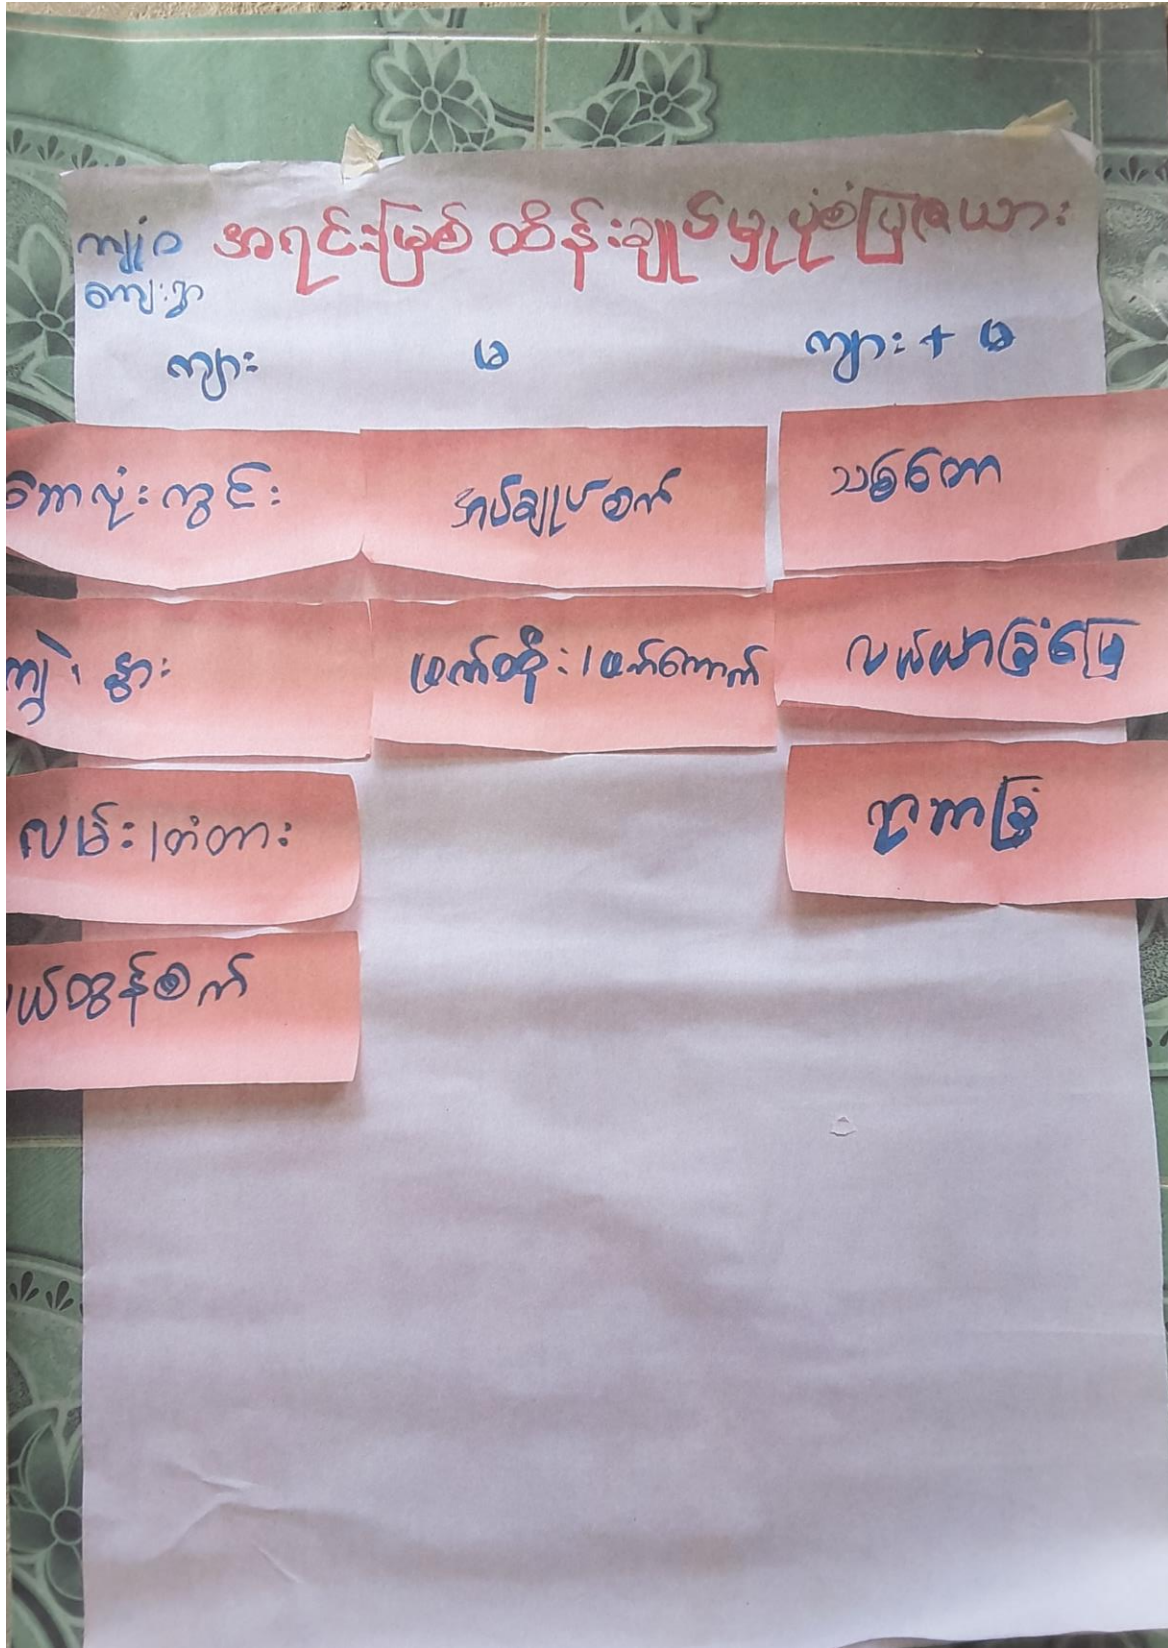 ကျုံဝ အရင်းမြစ် ထိန်းချုပ်မှုပုံစံပြဇယား
ကျေးရွာ
ကျား မ ကျား + မ
ဘောလုံးကွင်း အပ်ချုပ်စက် သစ်တော
ကျွဲ၊ နွား ဖက်ထိုး၊ဖက်ကောက် လယ်ယာခြံမြေ
လမ်း၊တံတား ရွာ့ခြံ
ယ်ထွန်စက်